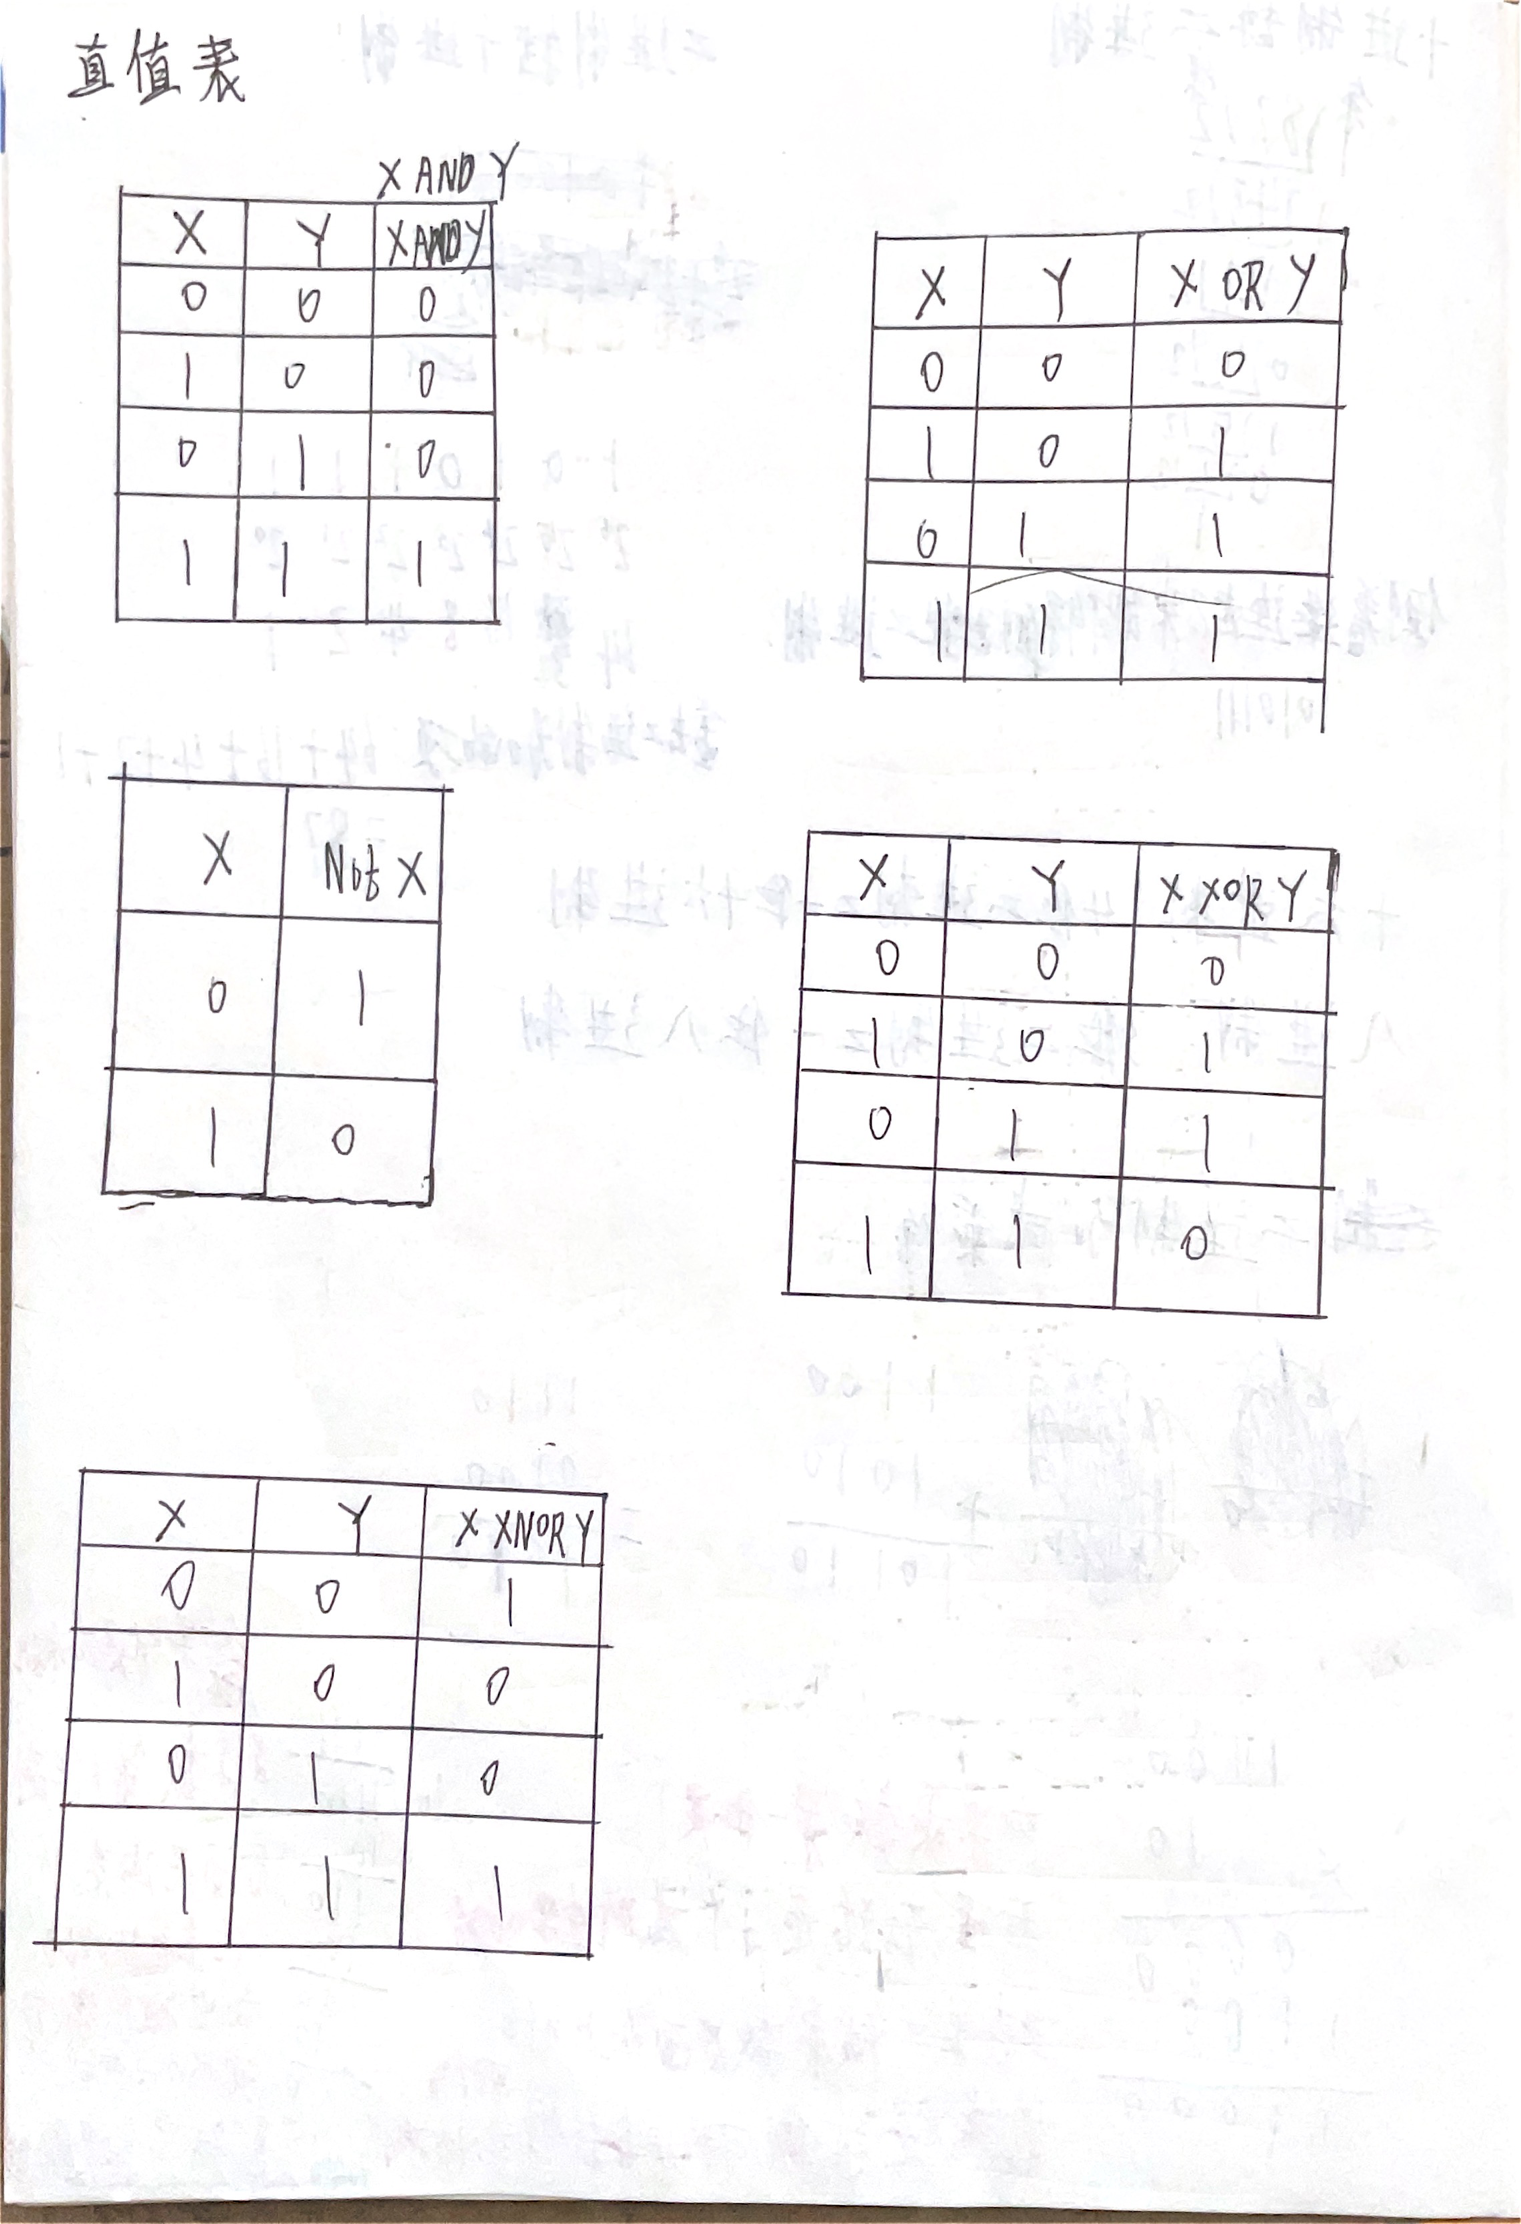 真值表
X AND Y
X Y X AND Y
0 0 0
1 0 0
0 1 0
1 1 1
X Y X OR Y
0 0 0
1 0 1
0 1 1
1 1 1
X Not X
0 1
1 0
X Y X XOR Y
0 0 0
1 0 1
0 1 1
1 1 0
X Y X XNOR Y
0 0 1
1 0 0
0 1 0
1 1 1